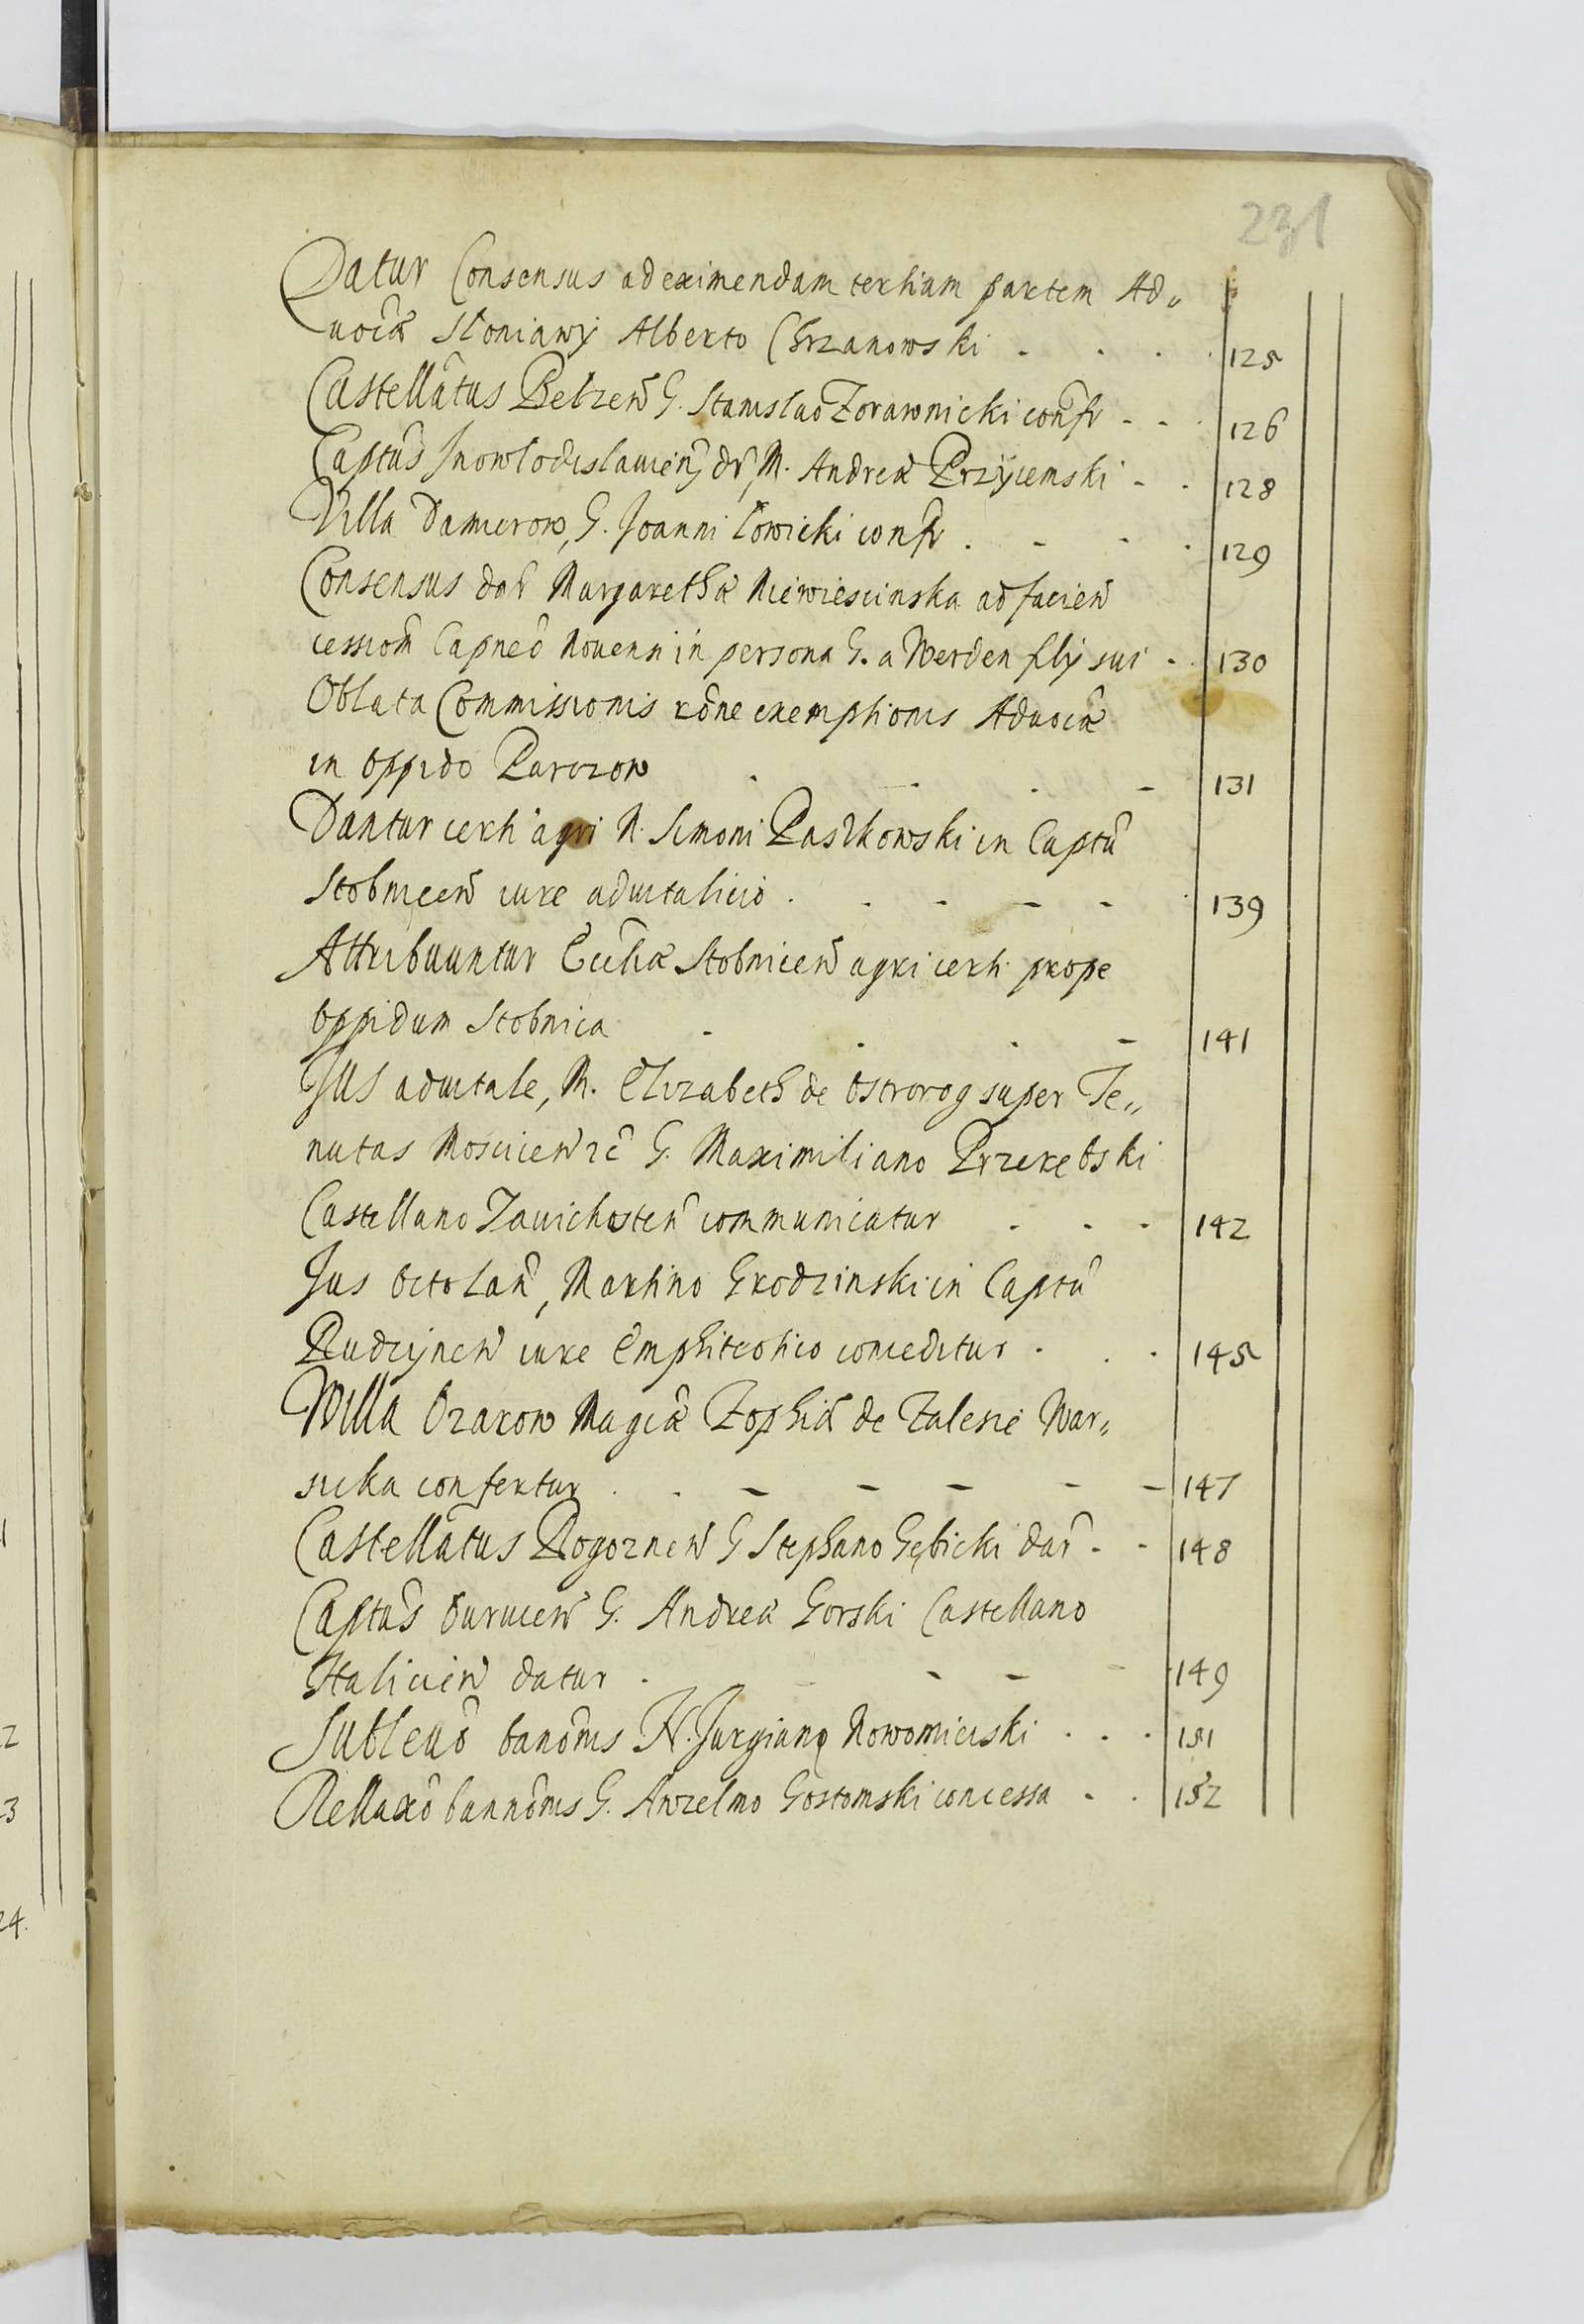 231
Datur Consensus ad eximendam tertiam partem Ad„
uociæ Stoniawy Alberto Chrzanowski . . . . 125
Castellatus Belzeñ G. Stanislao Zorawnicki confr - - - 126
Captus Inowlodislauieñ, dr, M. Andreæ Przyiemski - - 128
Villa Damierow, G. Joanni Lowicki confr . - - . 129
Consensus dar Margarethæ Niewiescinska ad facieñ
cessiom Capneo Nouensi in persona G. a Werden fily sui - . 130
Oblata Commissionis rõne exemptionis Aduociæ
in oppido Parczow . . . - 131
Dantur certi agri N. Simoni Paszkowski in Captu
Stobniceñ iure aduitalicio . . - - - . 139
Attribuuntur Eccliæ Stobniceñ agri certi prope
oppidum Stobnica - . . - 141
Jus aduitale, M. Elizabeth de Ostrorog super Te„
nutas Mosciceñ zc G. Maximiliano Przerebski
Castellano Zauichosteñ communicatur - - - 142
Jus octo Lañ, Martino Grodzinski in Captu
Rudzyneñ iure Emphiteotico conceditur . . . 145
Willa Ozarow Magcæ Zophiæ de Zalesie War„
sicka confertur . . - - - - - 147
Castellatus Rogozneñ G Stephano Gębicki dar - - 148
Captus Guruceñ G. Andreæ Gorski Castellano
Halicieñ datur . - - - - 149
Subleuo banonis N. Jurgiano Nowomieiski . . . 151
Rellaxo bannonis G. Anzelmo Gostomski concessa - . 152